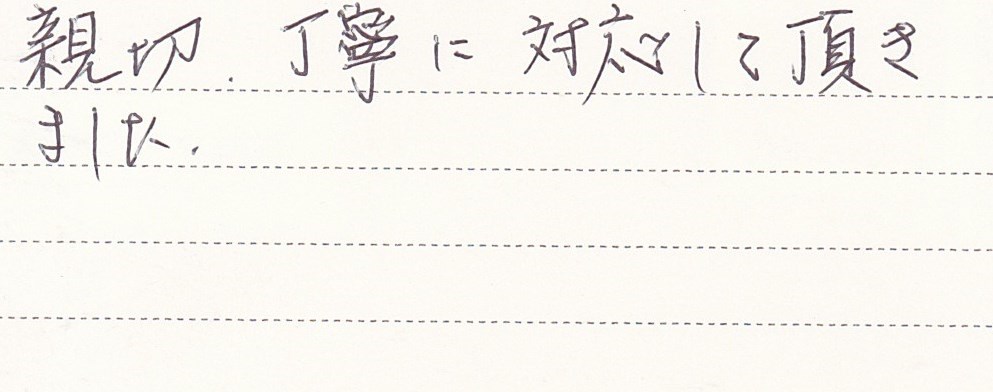 親切、丁寧に対応して頂き
ました。